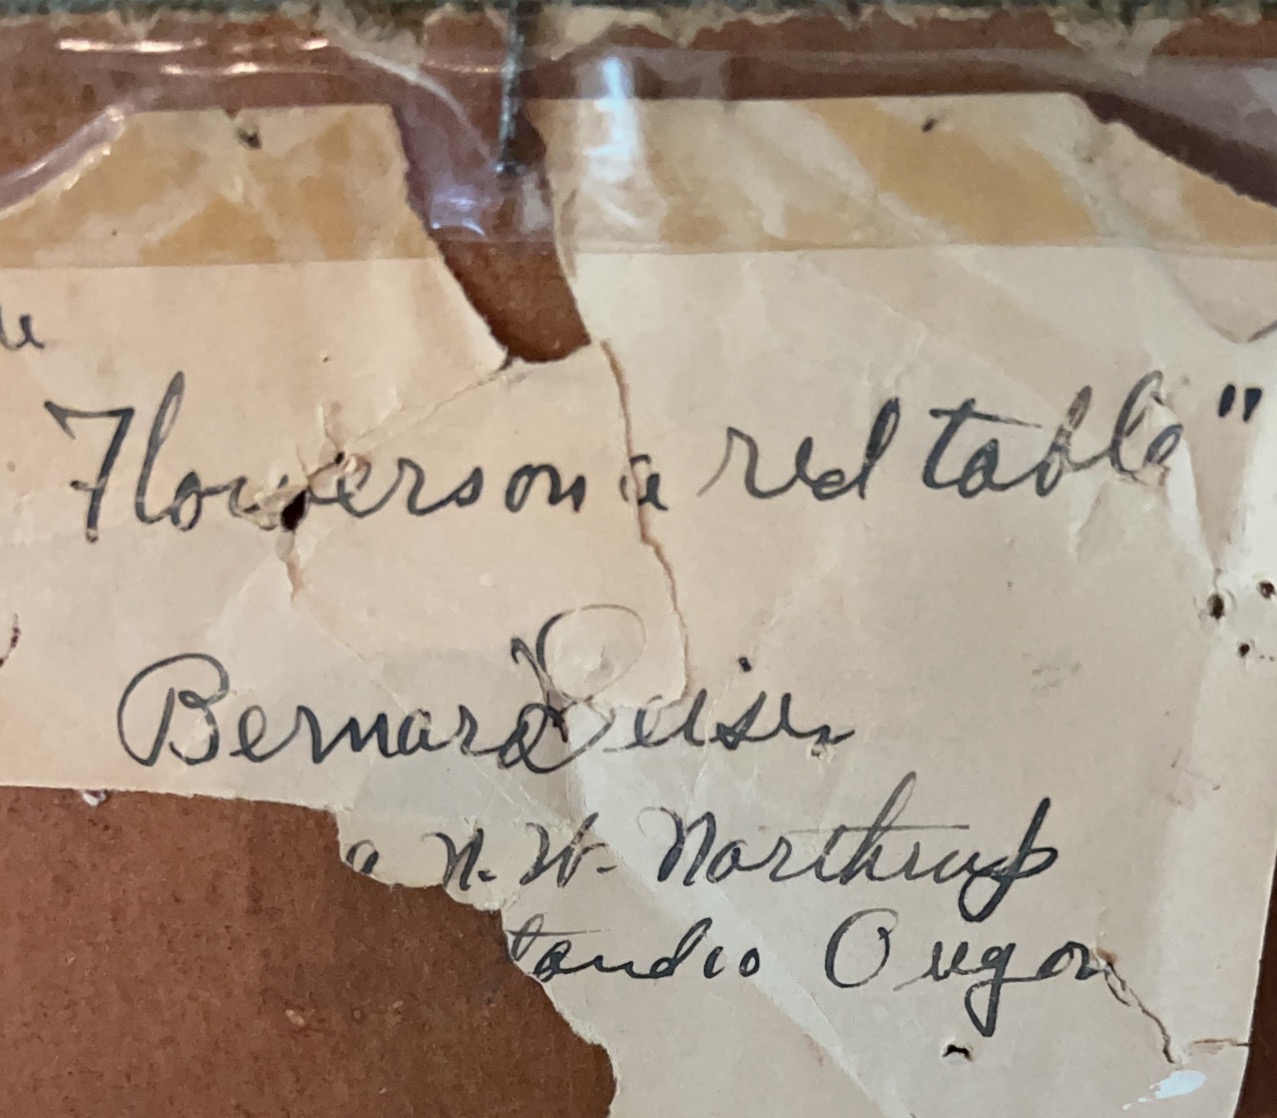 Flowers on a red table"
Bernard Geiser
N. W. Northrup
Oregon